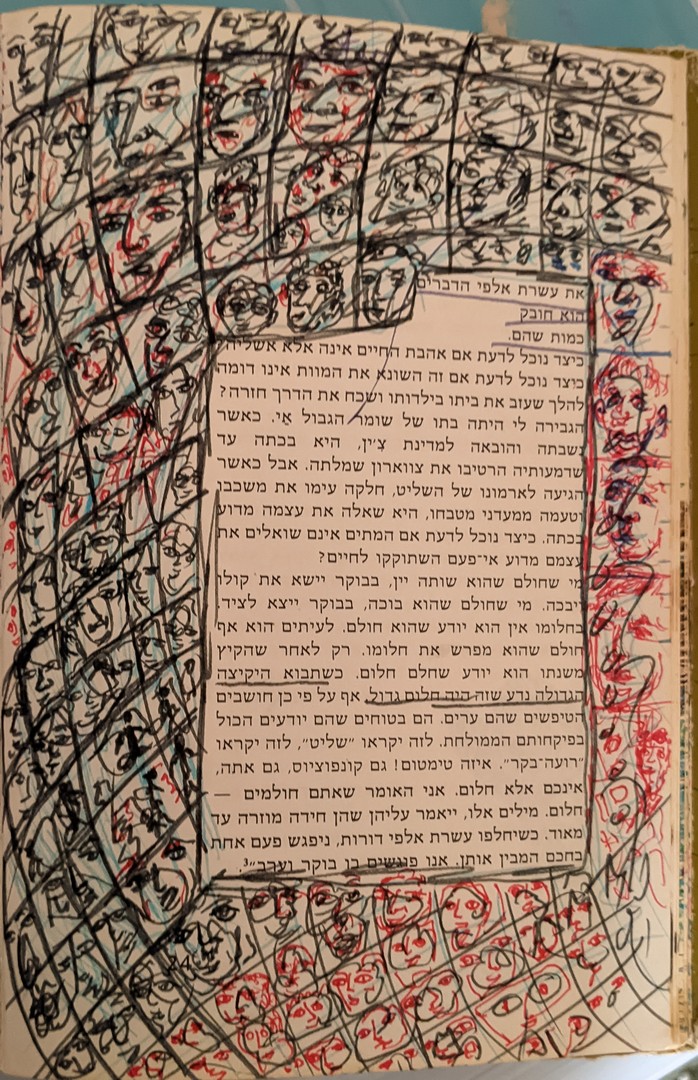 את עשרת אלפי הדברים
הוא חובק
כמות שהם.
כיצד נוכל לדעת אם אהבת החיים אינה אלא אשליה?
כיצד נוכל לדעת אם זה השונא את המוות אינו דומה
להלך שעזב את ביתו בילדותו ושכח את הדרך חזרה?
הגבירה לי היתה בתו של שומר הגבול אַי. כאשר
נשבתה והובאה למדינת צ׳ין, היא בכתה עד
שדמעותיה הרטיבו את צווארון שמלתה. אבל כאשר
הגיעה לארמונו של השליט, חלקה עימו את משכבו
וטעמה ממעדני מטבחו, היא שאלה את עצמה מדוע
בכתה. כיצד נוכל לדעת אם המתים אינם שואלים את
עצמם מדוע אי־פעם השתוקקו לחיים?
מי שחולם שהוא שותה יין, בבוקר יישא את קולו
ויבכה. מי שחולם שהוא בוכה, בבוקר ייצא לציד.
בחלומו אין הוא יודע שהוא חולם. לעיתים הוא אף
חולם שהוא מפרש את חלומו. רק לאחר שהקיץ
משנתו הוא יודע שחלם חלום. כשתבוא היקיצה
הגדולה נדע שזה היה חלום גדול. אף על פי כן חושבים
הטיפשים שהם ערים. הם בטוחים שהם יודעים הכול
בפיקחותם הממולחת. לזה יקראו ״שליט״, לזה יקראו
״רועה־בקר״. איזה טימטום! גם קונפוציוס, גם אתה,
אינכם אלא חלום. אני האומר שאתם חולמים —
חלום. מילים אלו, ייאמר עליהן שהן חידה מוזרה עד
מאוד. כשיחלפו עשרת אלפי דורות, ניפגש פעם אחת
בחכם המבין אותן. אנו פוגשים בן בוקר וערב״³.
24